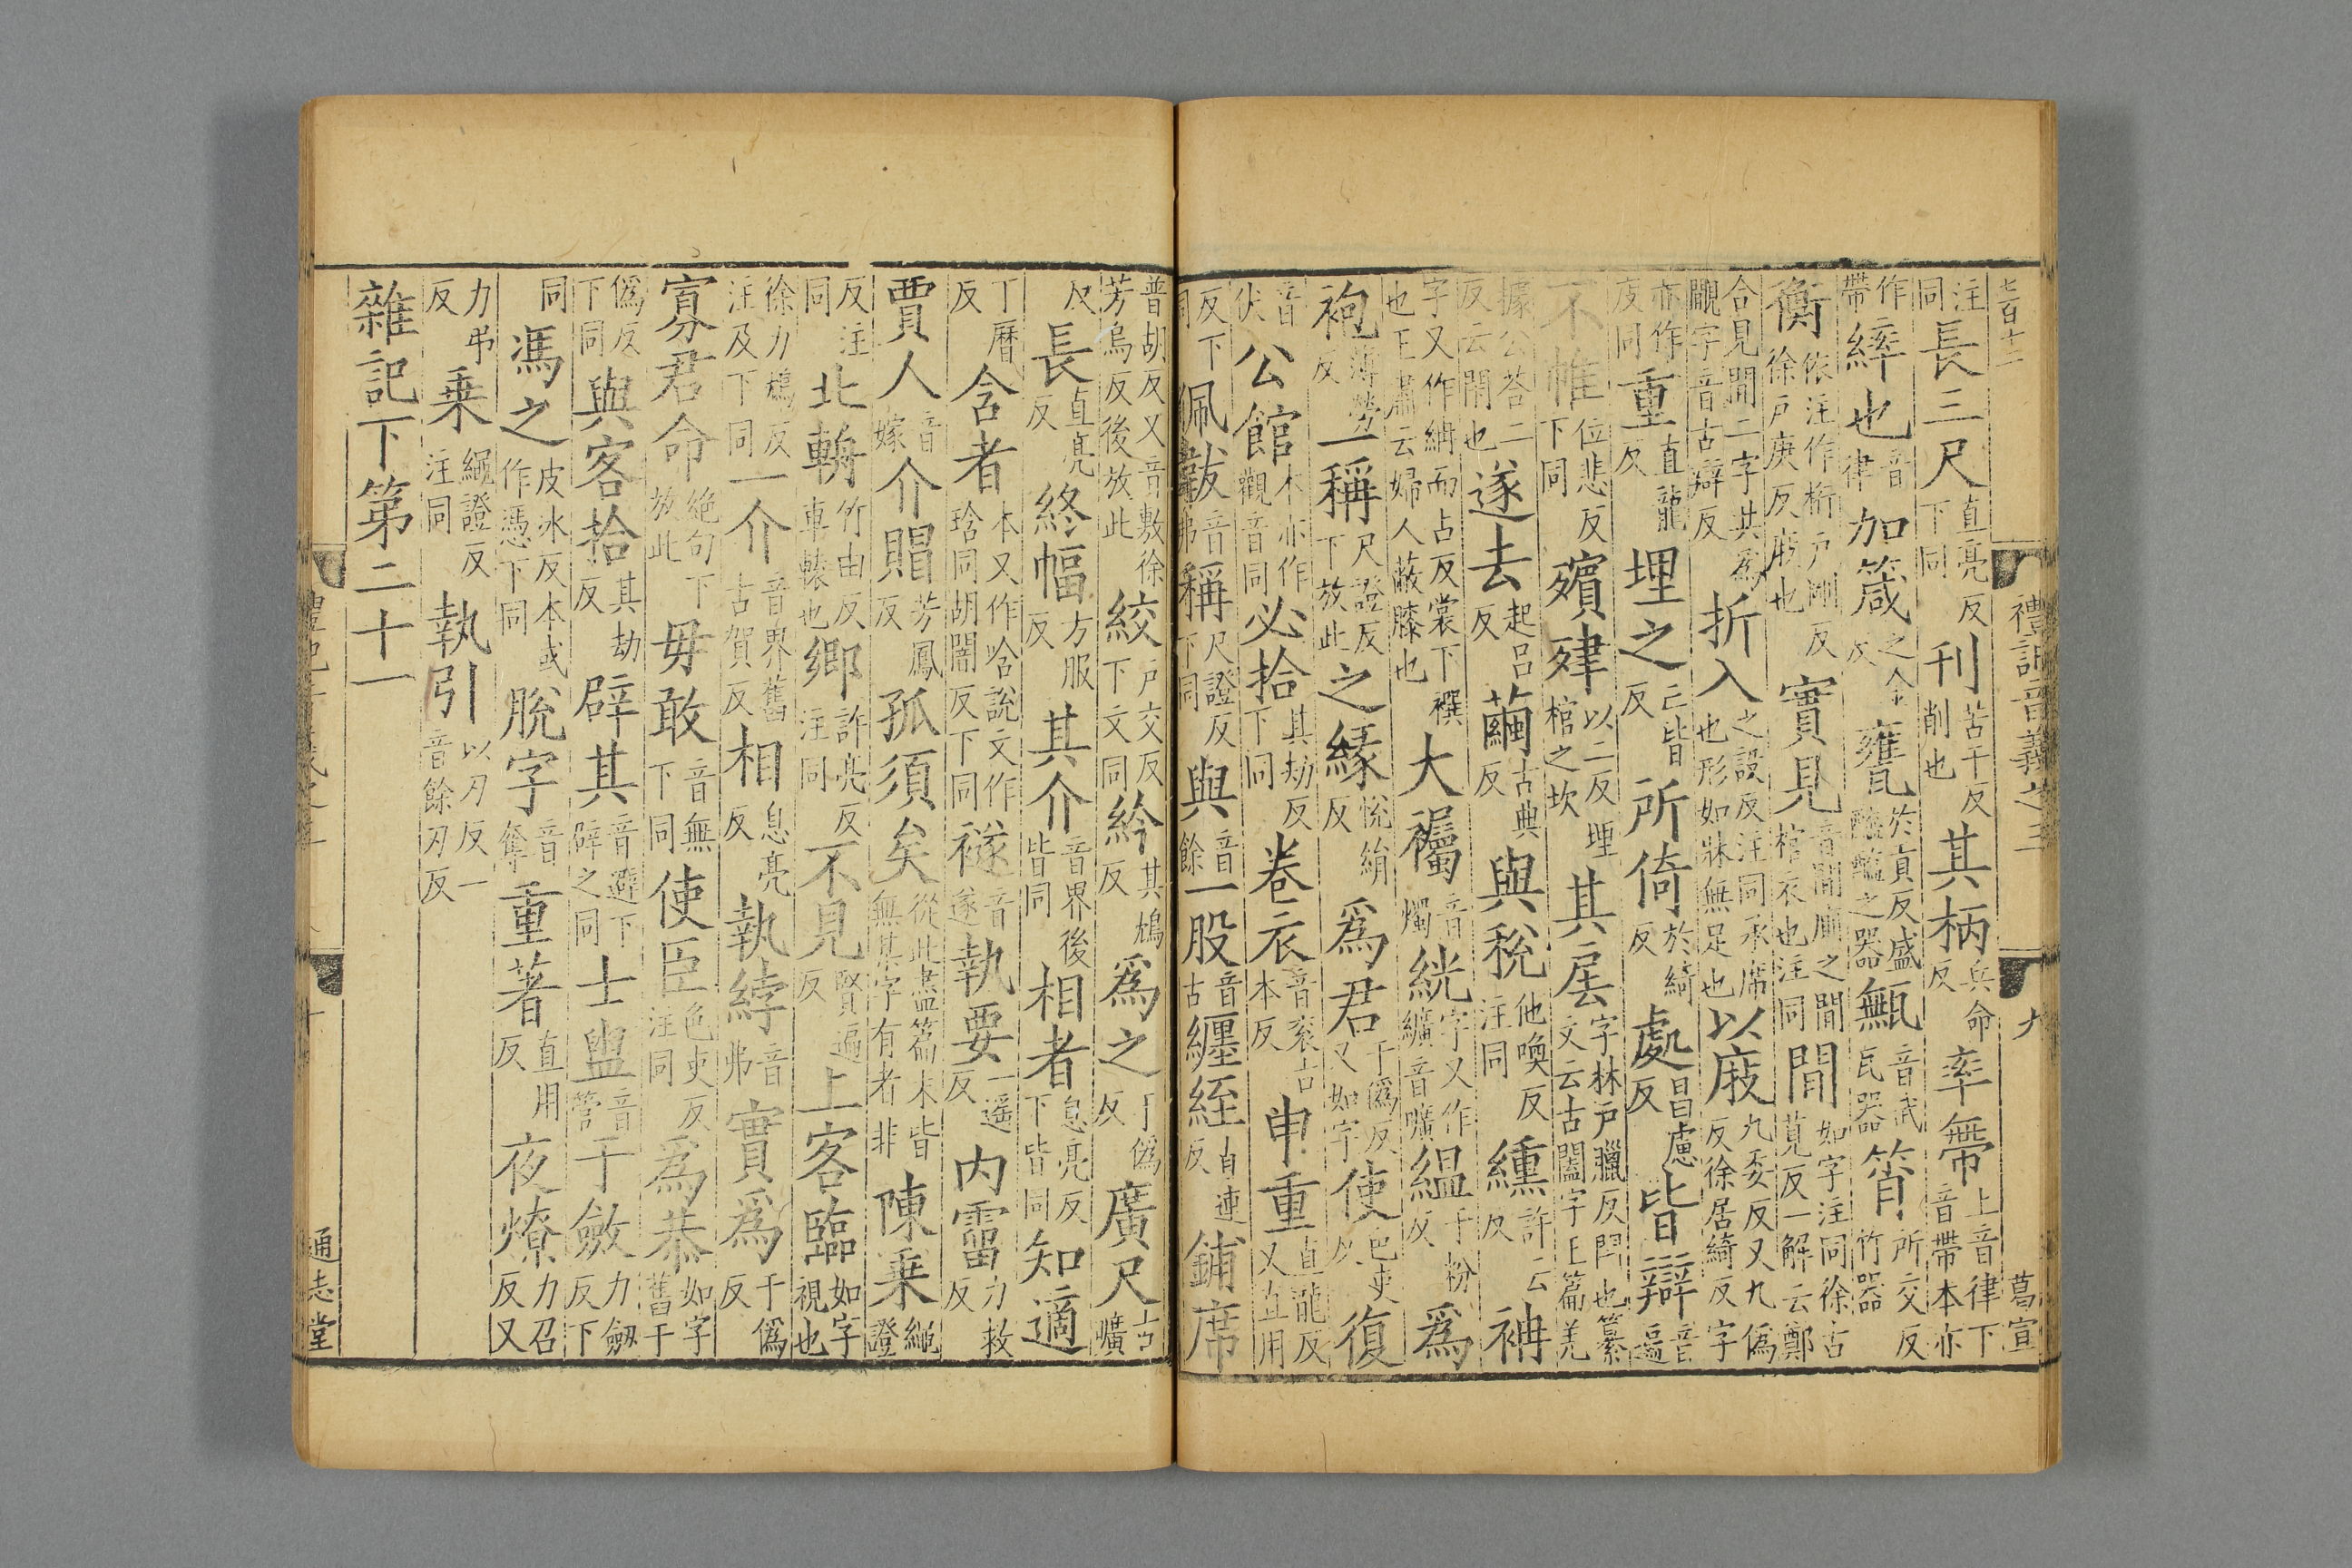 七百十二 禮記音義之三 九 葛宣
注同 長三尺 直亮反下同 刊 苦干反削也 其柄 兵命反 率帶 上音律下音帶本亦
作帶 繂也 音律 加箴 之金反 甕 於貢反盛醯醢之器 甒 音武瓦器 筲 所交反竹器
衡 依注作桁戶剛反徐戶庚反庪也 實見 音間廁之間棺衣也注同 間 如字注同徐古莧反一解云鄭
合見間二字共爲覸字音古辯反 折入 之設反注同承席也形如牀無足也 以庪 九委反又九僞反徐居綺反字
亦作庋同 重 直龍反 埋之 亡皆反 所倚 於綺反 處 昌慮反 皆辯 音遍
不帷 位悲反下同 殯肂 以二反埋棺之坎 其扂 字林戶臘反閂也纂文云古闔字玉篇羌
據公荅二反云閉也 遂去 起呂反 繭 古典反 與稅 他喚反注同 纁 許云反 袡
字又作䌰而占反裳下襈也王肅云婦人蔽膝也 大襡 音燭 絖 字又作纊音曠 縕 于粉反 爲
袍 薄勞反 一稱 尺證反下放此 之緣 悅絹反 爲君 于僞反又如字 使 色吏反 復
音伏 公館 本亦作觀音同 必拾 其劫反下同 卷衣 音衮古本反 申重 直龍反又直用
反下同 佩韍 音弗 稱 尺證反下同 與 音餘 一股 音古 纏絰 自連反 鋪席
普胡反又音敷徐芳烏反後放此 絞 戶交反下文同 紟 其鴆反 爲之 于僞反 廣尺 古曠
反 長 直亮反 終幅 方服反 其介 音界後皆同 相者 息亮反下皆同 知適
丁曆反 含者 本又作唅說文作琀同胡闇反下同 襚 音遂 執要 一遥反 內霤 力救反
賈人 音嫁 介賵 芳鳳反 孤須矣 從此盡篇末皆無某字有者非 陳乘 繩證
反注同 北輈 竹由反車轅也 鄉 許亮反注同 不見 賢遍反 上客臨 如字視也
徐力鴆反注及下同 一介 音界舊古賀反 相 息亮反 執綍 音弗 實爲 于僞反
寡君命 絶句下放此 毋敢 音無下同 使臣 色吏反注同 爲恭 如字舊于
僞反下同 與客拾 其劫反 辟其 音避下辟之同 士盥 音管 于斂 力劒反下
同 馮之 皮冰反本或作憑下同 脫字 音奪 重著 直用反 夜燎 力召反又
力弔反 乘 繩證反注同 執引 以刃反一音餘刃反
雜記下第二十一
通志堂